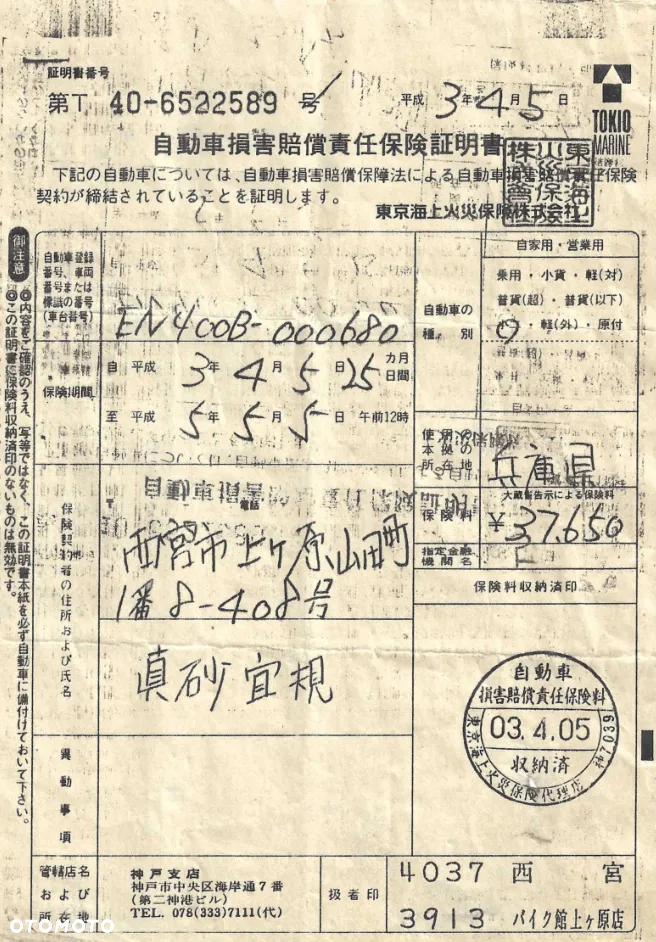 証明書番号
第T 40-6522589 号
平成 3年 4月 5日
TOKIO
MARINE
自動車損害賠償責任保険証明書
下記の自動車については、自動車損害賠償保障法による自動車損害賠償責任保険
契約が締結されていることを証明します。
東京海上火災保険株式会社
東京海上火災保険株式会社
御注意
◎内容をご確認のうえ、写等ではなく、この証明書本紙を必ず自動車に備付けておいて下さい。
◎この証明書に保険料収納済印のないものは無効です。
EN400B-000680
自動車の
種別
自家用・営業用
乗用・小貨・軽(対)
普貨(超)・普貨(以下)
・軽(外)・原付
保険期間
自 平成 3年 4月 5日 25カ月
日間
至 平成 5年 5月 5日 午前12時
使用の
本拠の
所在地
兵庫県
大蔵省告示による保険料
保険料
¥37,650
指定金融
機関名
保険料収納済印
保険契約者の住所および氏名
〒
電話
西宮市上ヶ原山田町
1番8-408号
真砂宜規
自動車
損害賠償責任保険料
03.4.05
収納済
東京海上火災保険代理店 神7039
異動事項
管轄店名
および
所在地
神戸支店
神戸市中央区海岸通7番
(第二神港ビル)
TEL. 078(333)7111(代)
扱者印
4037 西宮
3913 バイク館上ヶ原店
OTOMOTO